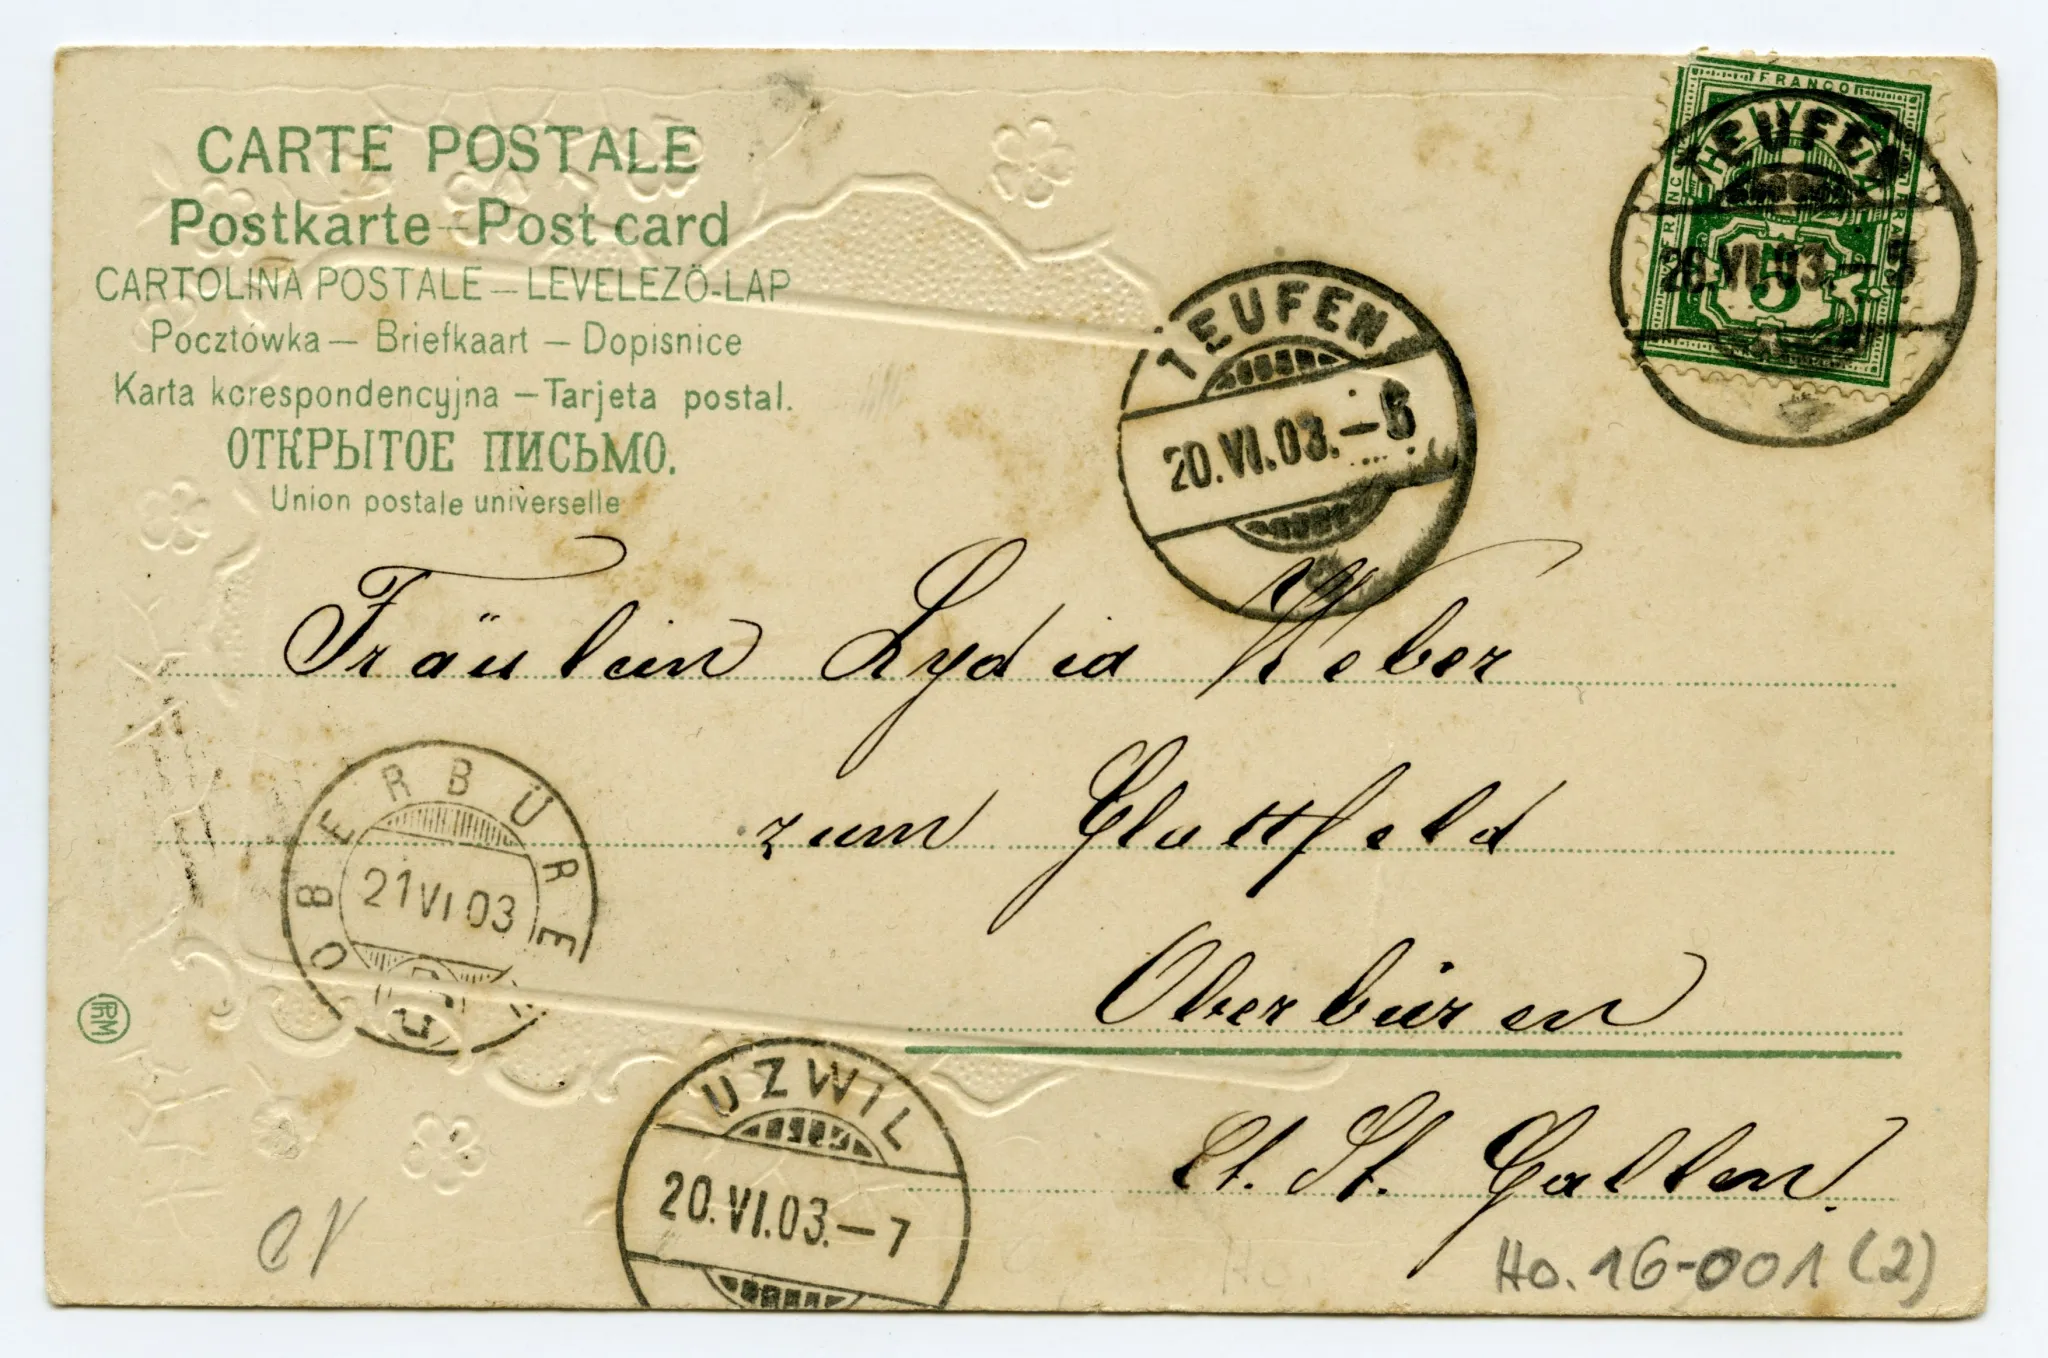 CARTE POSTALE
Postkarte – Post card
CARTOLINA POSTALE – LEVELEZÖ-LAP
Pocztówka – Briefkaart – Dopisnice
Karta korespondencyjna – Tarjeta postal.
ОТКРЫТОЕ ПИСЬМО.
Union postale universelle
FRANCO
HELVETIA
5
TEUFEN
20.VI.03.–5
Fräulein Lydia Weber
zum Glattfeld
Oberbüren
Ct. St. Gallen.
OBERBÜREN
21 VI 03
RM
UZWIL
20.VI.03.–7
Ho. 16-001 (2)